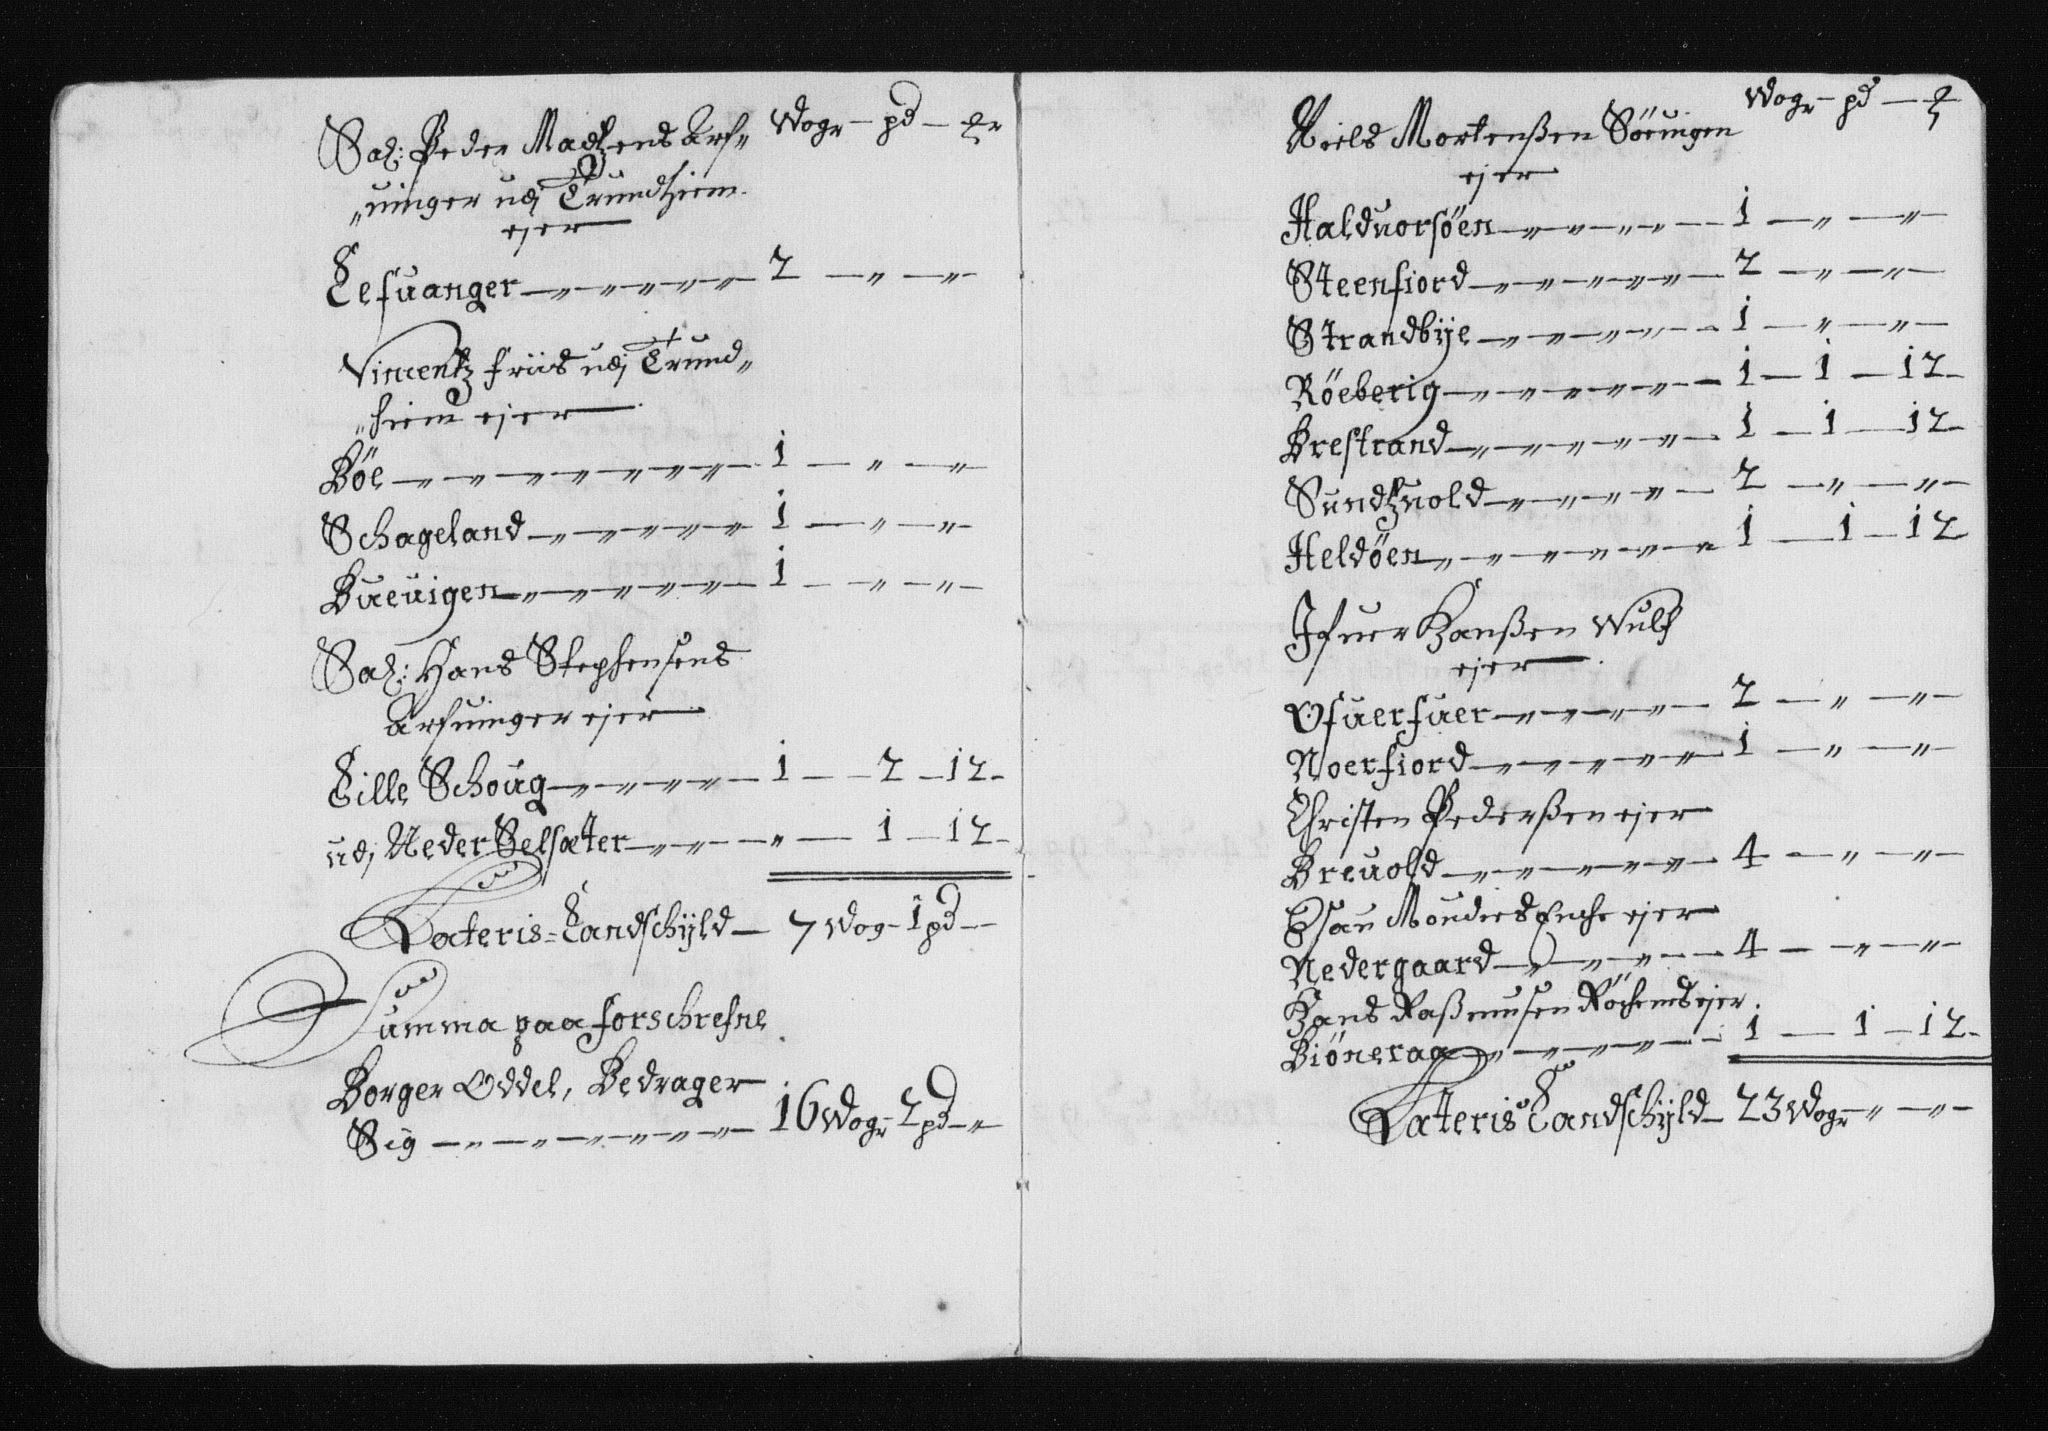 Wogr – pd – ℔r
Sal: Peder Madtzens Arf„
„uinger udj Trundhiem
ejer
Lefuanger —„—„—„—„— 2 —„—„—
Vincentz friis udj Trund„
„hiem ejer
Böe —„—„—„—„—„—„— 1 —„—„—
Schageland —„—„—„—„— 1 —„—„—
Bueuigen —„—„—„—„— 1 —„—„—
Sal: Hans Stephensens
Arfuinger ejer
Lille Schoug —„—„—„— 1 — 2 — 12 –
udj Neder Selsæter —„—„—„— 1 — 12 –
Lateris = Landschyld — 7 Wog – 1 pd –
Summa paa forschrefne
Borger Oddel, Bedrager
Sig —„—„—„—„—„— 16 Wogr 2 pd –„–
Wogr – pd – ℔
Niels Mortenßen Söruigen
ejer
Halduorsöen —„—„—„—„— 1 —„—„—
Steenfiord —„—„—„—„— 2 —„—„—
Strandbÿe —„—„—„—„— 1 —„—„—
Röeberig —„—„—„—„— 1 — 1 — 12 –
Brestrand —„—„—„—„— 1 — 1 — 12 –
Sundtzuold —„—„—„—„— 2 —„—„—
Heldöen —„—„—„—„— 1 — 1 — 12
Ifuer Hanßen Wulf
ejer
Ofuerfuer —„—„—„—„— 2 —„—„—
Noerfiord —„—„—„—„— 1 —„—„—
Christen Pederßen ejer
Breuold —„—„—„—„— 4 —„—„—
Esau Moudies Enche ejer
Nedergaard —„—„—„— 4 —„—„—
Hans Raßmusen Röchems ejer
Biöneraa —„—„—„—„— 1 — 1 — 12 –
Lateris Landschÿld – 23 Wogr –„—„–